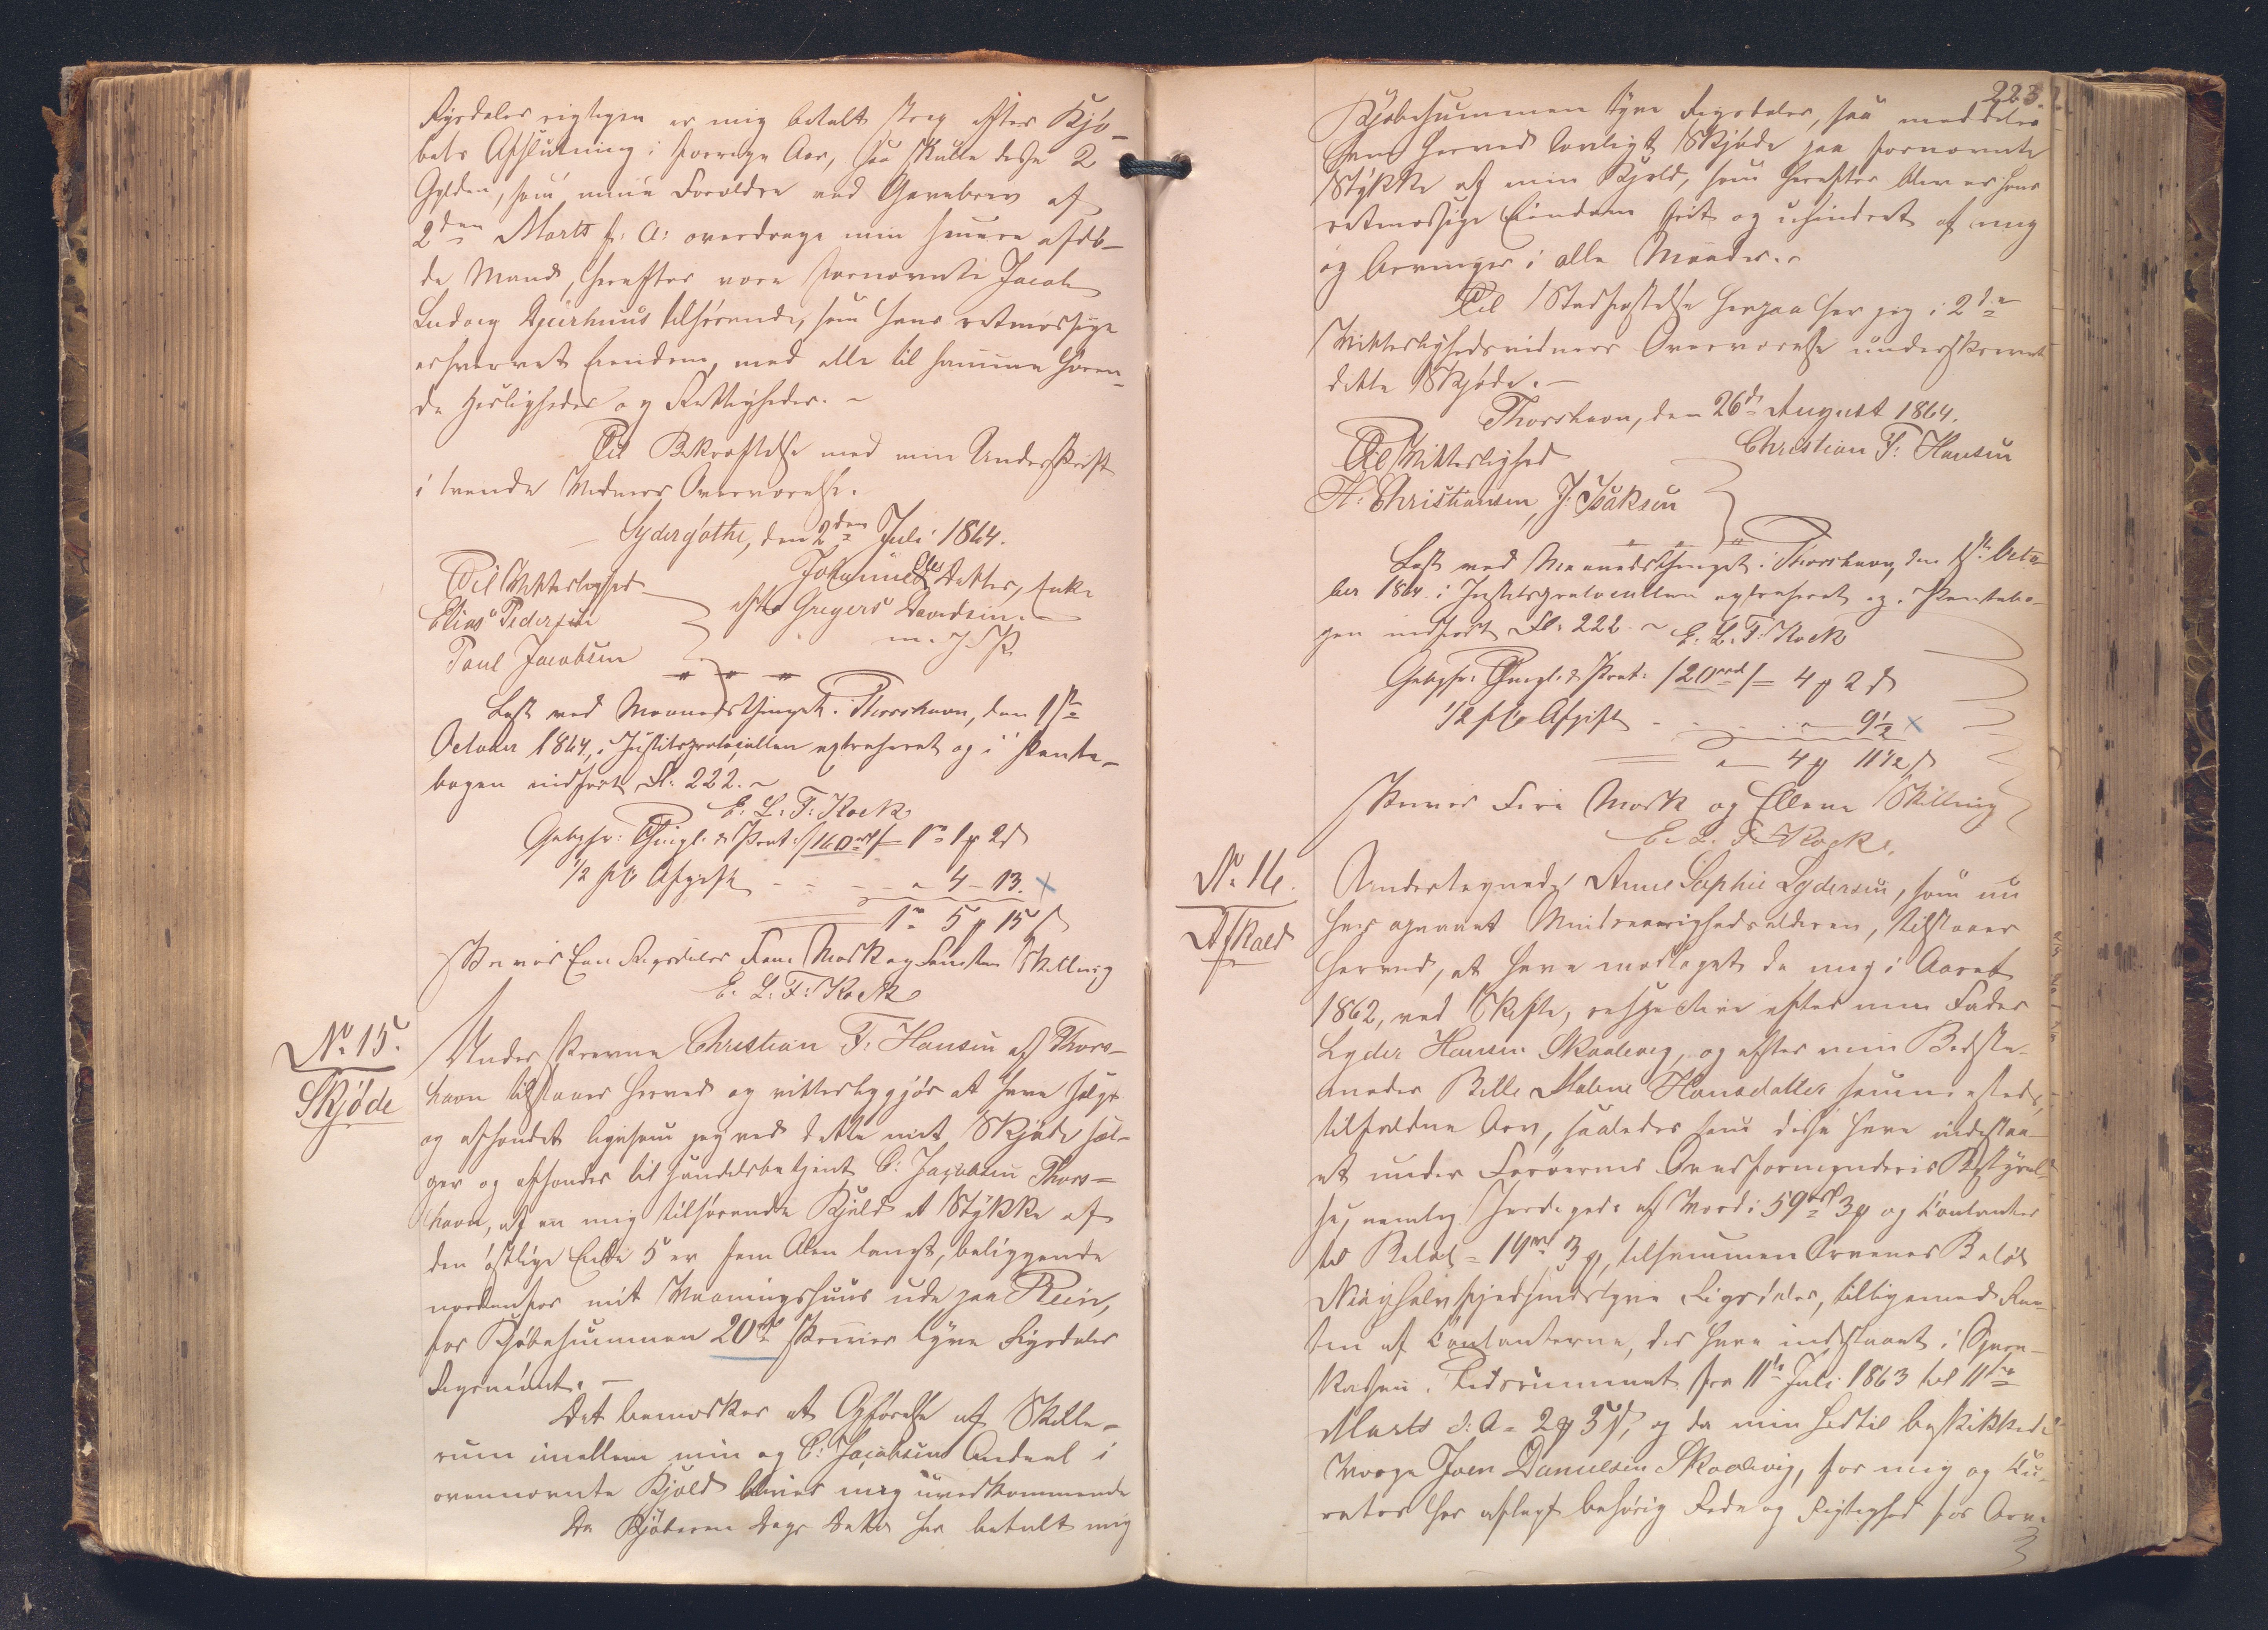 Rigsdaler rigtigen er mig betalt strax efter Kjø-
bets Afslutning i forrige Aar, saa skulle disse 2
Gylden, som mine Forældre ved Gavebrev af
2den Marts f: A: overdroge min senere afdø-
de Mand, herefter være fornævnte Jacob
Ludvig Djurhuus tilhørende, som hans retmæssige
erhvervet Eiendom, med alle til samme høren-
de Herligheder og Rettigheder. ~
Til Bekræftelse med min Underskrift
i tvende Vidners Overværelse.
Sydergøthe, den 2den Juli 1864.
Til Vitterlighed
Johanne Olesdatter, Enke
Elias Pedersen
efter Gregers Davidsen. ~
Poul Jacobsen
m. f. P.
Læst ved Maanedsthinget i Thorshavn, den 1ste
October 1864, i Justitsprotocollen extraheret og i Pante-
bogen indført Fl. 222. ~
E. L. T. Kock
Gebyhr: Thingl. & Prot: /160 rd/ = 1 rd 1 ꝑ 2 ß
1/2 pCt Afgift - - - - " 4 - 13. x
1 rd 5 ꝑ 15 ß
skriver Een Rigsdaler Fem Mark og Femten Skilling
E. L. T. Kock
No. 15.
Skjøde
Underskrevne Christian F. Hansen af Thors-
havn tilstaaer herved og vitterliggjør at have solgt
og afhændet ligesom jeg ved dette mit Skjøde sæl-
ger og afhænder til Handelsbetjent C: Jacobsen Thors-
havn, af en mig tilhørende Kjeld et Stykke af
den østlige Ende 5 er fem Alen langt, beliggende
nordenfor mit Vaaningshuus ude paa Rein,
for Kjøbesummen 20 rd skriver tyve Rigsdaler
Rigsmønt. ~
Det bemærkes at Opførelse af Skille-
rum imellem min og C: Jacobsens Andeel i
ovennævnte Kjeld bliver mig uvedkommende
Da Kjøberen Dags Dato har betalt mig
223.
Kjøbesummen tyve Rigsdaler, saa meddeles
ham herved lovligt Skjøde paa fornævnte
Stykke af min Kjeld, som herefter bliver hans
retmæssige Eiendom frit og uhindret af mig
og Arvinger i alle Maader. ~
Til Stadfæstelse herpaa har jeg i 2de
Vitterlighedsvidners Overværelse underskrevet
dette Skjøde. ~
Thorshavn, den 26de August 1864.
Til Vitterlighed
Christian F. Hansen
H. Christiansen, J. Isaksen
Læst ved Maanedsthinget i Thorshavn, den 1ste Octo-
ber 1864 i Justitsprotocollen extraheret og i Pantebo-
gen indført Fl. 222. ~ E. L. T. Kock
Gebyhr: Thingl. & Prot: /20 rd/ = 4 ꝑ 2 ß
1/2 pCt Afgift - - - - " 9 1/2 x
" 4 ꝑ 11 1/2 ß
skriver Fire Mark og Elleve Skilling
E. L. T. Kock.
No. 16.
Afkald
Undertegnede Anne Sophie Lydersen, som nu
har opnaaet Mindreaarighedsalderen, tilstaaer
herved, at have modtaget de mig i Aaret
1862, ved Skifte, respective efter min Fader
Lyder Hansen Skaalevig, og efter min Bedste-
moder Bille Malene Hansdatter sammesteds,
tilfaldne Arv, saaledes som disse have indestaa-
et under Færøernes Overformynderis Bestyrel-
se, nemlig Jordegods af Værdi 59 rd 3 ꝑ og Contanter
til Beløb = 19 rd 3 ꝑ, tilsammen Arvenes Beløb
Rigsdaler, tilligemed Ren-
ten af Contanterne, der have indestaaet i Spare-
kassen i Tidsrummet fra 11te Juli 1863 til 11te
Marts d: A = 2 ꝑ 3 ß, og da min hidtil beskikkede
Værge Joen Danielsen Skaalevig, for mig og Cu-
rator har aflagt behørig Rede og Rigtighed for Arv-